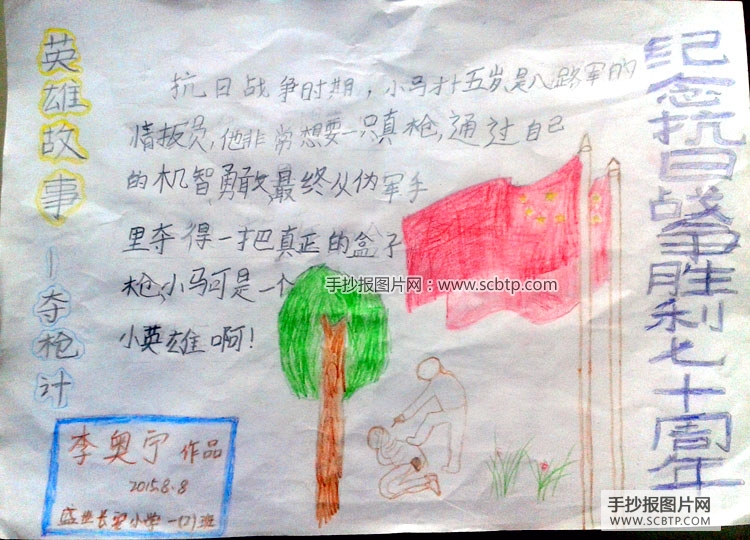 纪念抗日战争胜利七十周年
英雄故事—夺枪计
抗日战争时期，小马才十五岁是八路军的
情报员,他非常想要一只真枪,通过自己
的机智勇敢最终从伪军手
里夺得一把真正的盒子
枪,小马可是一个
小英雄啊!
手抄报图片网：www.scbtp.com
李奥宁 作品
2015.8.8
小学一 班
手抄报图片网
WWW.SCBTP.COM